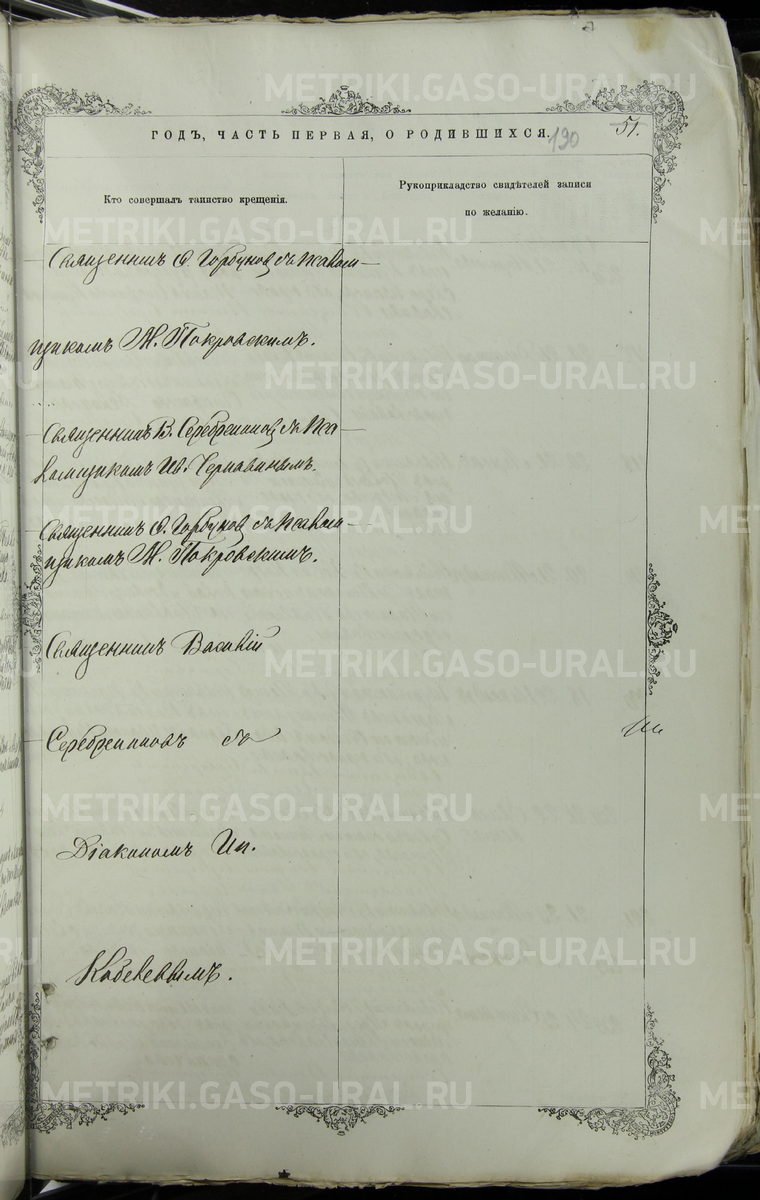 METRIKI.GASO-URAL.RU
ГОДЪ, ЧАСТЬ ПЕРВАЯ, О РОДИВШИХСЯ.
190
51.
Кто совершалъ таинство крещенія.
Рукоприкладство свидѣтелей записи
по желанію.
Священникъ Ѳ. Горбуновъ съ псалом-
щикомъ М. Покровскимъ.
Священникъ В. Серебренниковъ съ пса-
ломщикомъ Ив. Чернавинымъ.
Священникъ Ѳ. Горбуновъ съ псалом-
щикомъ М. Покровскимъ.
Священникъ Василій
Серебренниковъ съ
Діакономъ